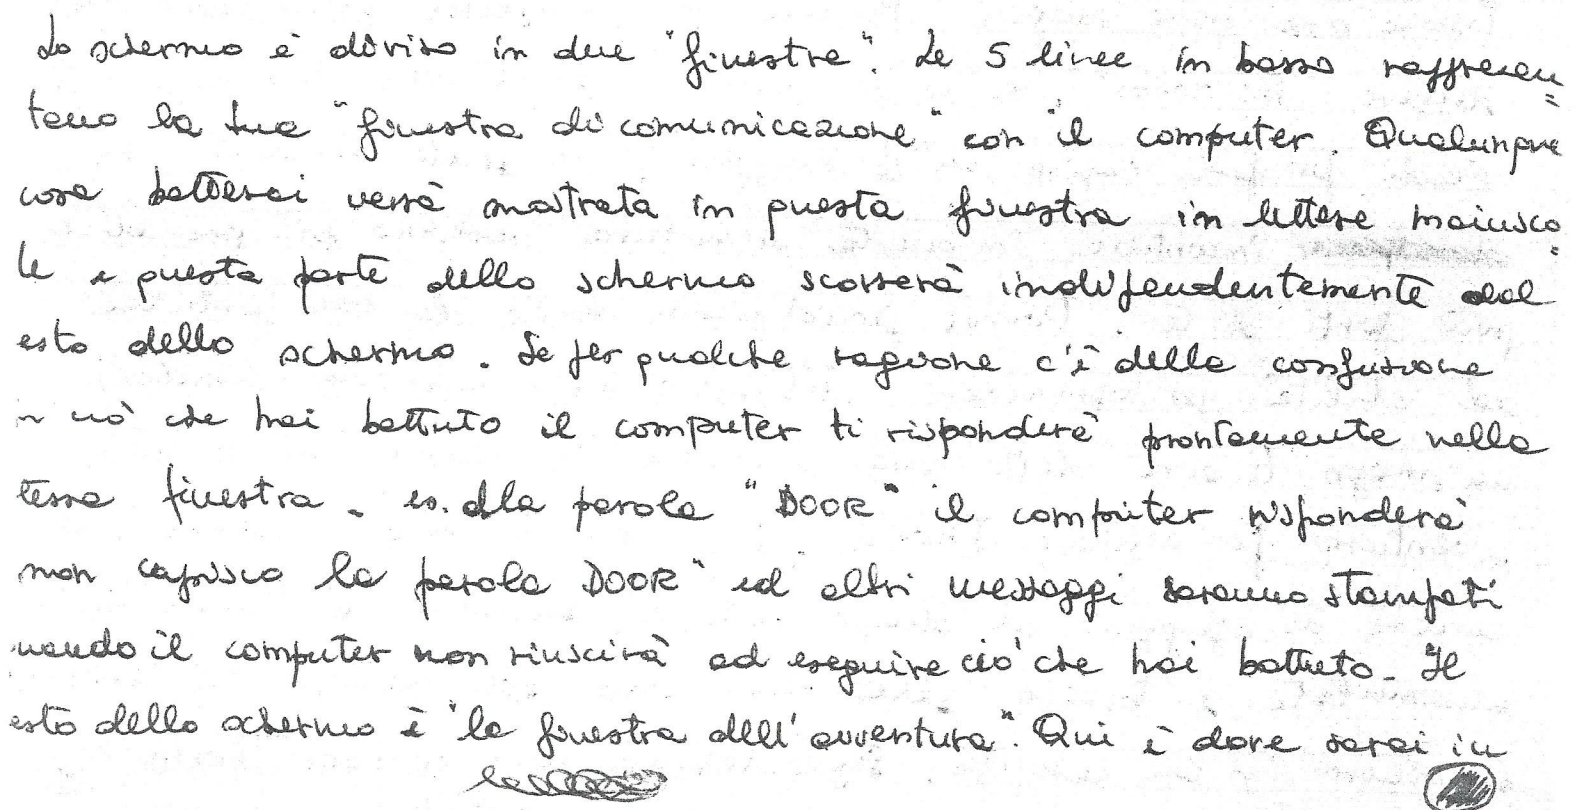 Lo schermo è diviso in due "finestre". Le 5 linee in basso rappresen=
tano la tua "finestra di comunicazione" con il computer. Qualunque
cosa batterai verrà mostrata in questa finestra in lettere maiusco=
le e questa parte dello schermo scorrerà indipendentemente dal
esto dello schermo. Se per qualche ragione c'è della confusione
in ciò che hai battuto il computer ti risponderà prontamente nella
tessa finestra. es. alla parola "DOOR" il computer risponderà
non capisco la parola DOOR" ed altri messaggi saranno stampati
uando il computer non riuscirà ad eseguire ciò che hai battuto. Il
esto dello schermo è "la finestra dell'avventura". Qui è dove sarai in